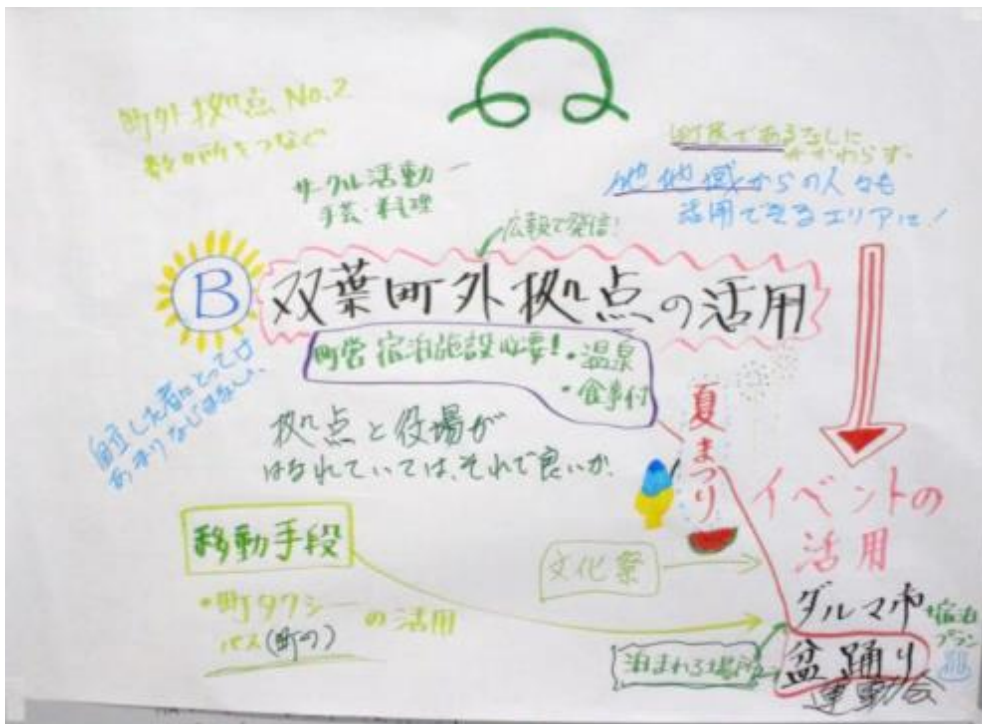 町外拠点 No.2
数ヵ所をつなぐ
サークル活動
手芸・料理
広報で発信!
町民であるなしに
かかわらず
他地域からの人々も
活用できるエリアに!
B
双葉町外拠点の活用
町営宿泊施設必要!
・温泉
・食事付
自立した者にとっては
あまりなじまない、
拠点と役場が
はなれていては、それで良いか、
夏まつり
イベントの
活用
移動手段
・町タクシー
バス(町の)
の活用
文化祭
ダルマ市
・宿泊
プラン
泊まれる場所
盆踊り
運動会